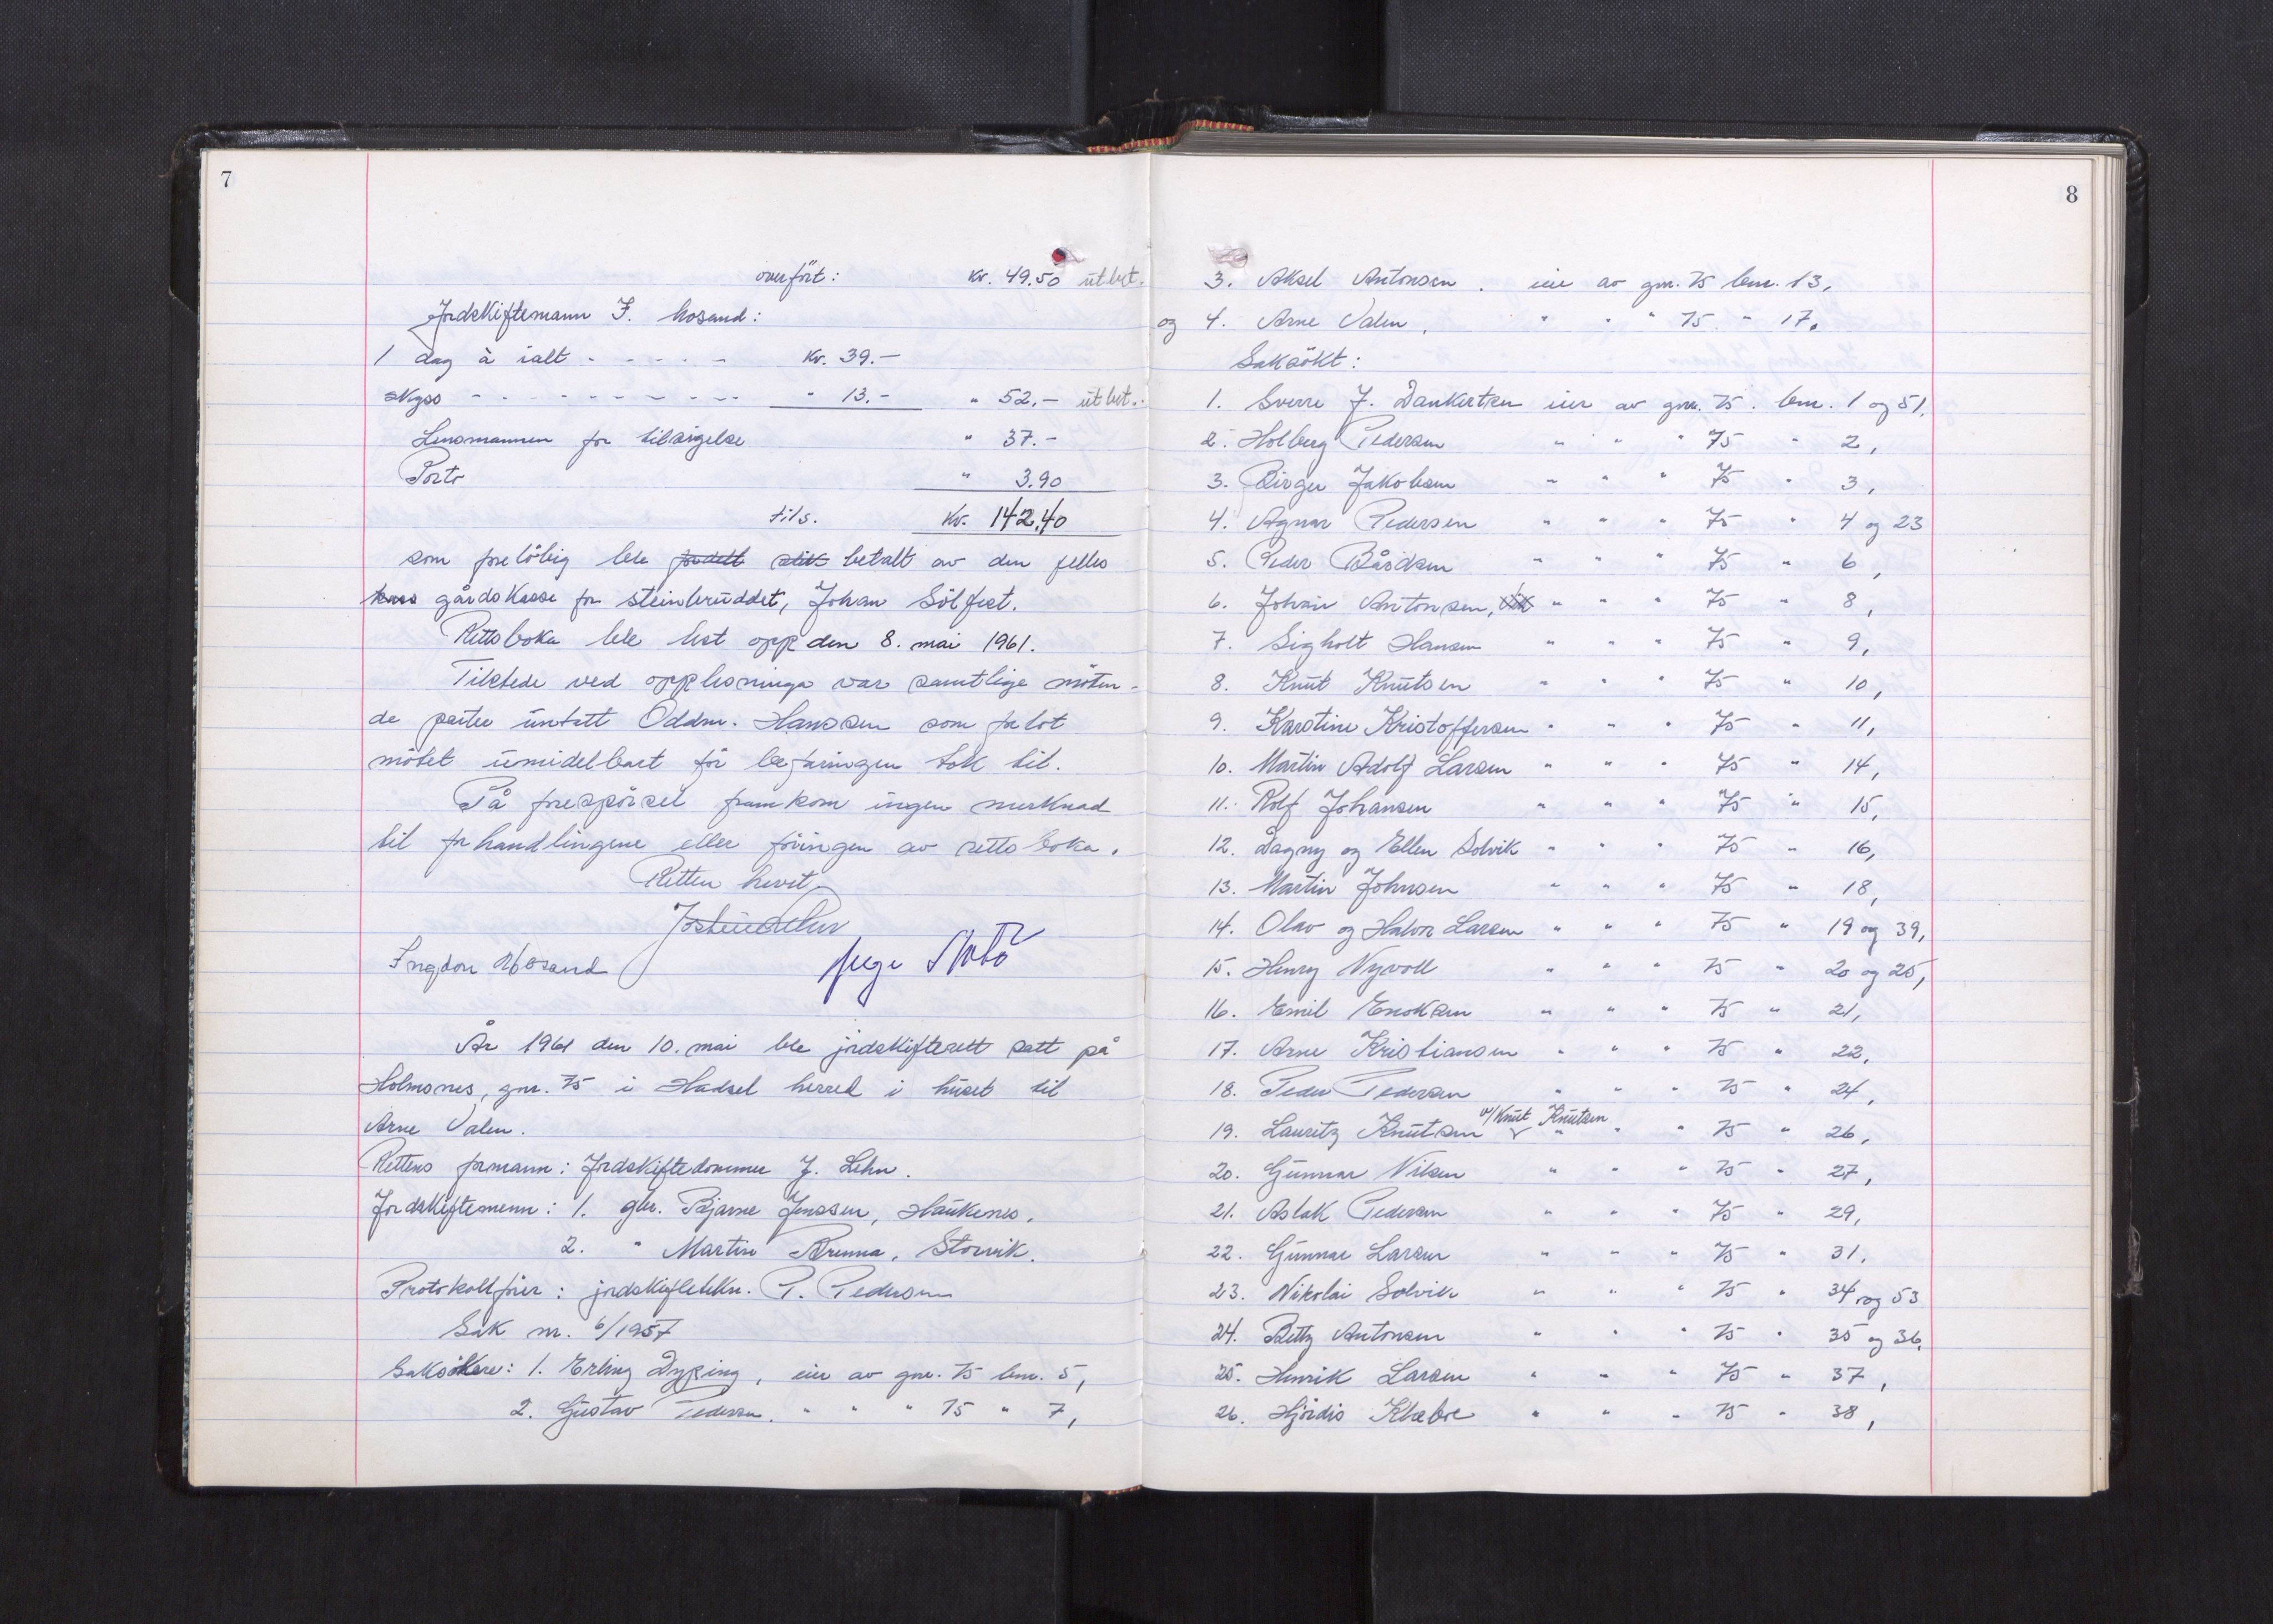 7
overfört: kr. 49.50 utbet.
Jordskiftemann I. Mosand:
1 dag à ialt - - - - - kr. 39.-
skyss - - - - - - - - - - " 13.- " 52.- utbet.
Lensmannen for tilsigelse " 37.-
Porto " 3.90
tils. kr. 142.40
som foreløbig ble fordelt slik betalt av den felles
kass gårdskasse for steinbruddet, Johan Sölfest.
Rettsboka ble lest opp den 8. mai 1961.
Tilstede ved opplesninga var samtlige möten-
de parter untatt Oddm. Hanssen som forlot
mötet umidelbart för befaringen tok til.
På forespörsel framkom ingen merknad
til forhandlingene eller föringen av rettsboka.
Retten hevet,
Ingdon Mosand
År 1961 den 10. mai ble jordskifterett satt på
Holmsnes, gnr. 75 i Hadsel herred i huset til
Arne Valen.
Rettens formann: Jordskiftedommer J. Lehn.
Jordskiftemenn: 1. gbr. Bjarne Jenssen, Haukenes.
2. " Martin Brenna, Storvik.
Protokollförer: jordskiftetekn. P. Pedersen
Sak nr. 6/1957
Saksökere: 1. Erling Dyping, eier av gnr. 75 bnr. 5,
2. Gustav Pedersen. " " " 75 " 7,
8
3. Aksel Antonsen. eier av gnr. 75 bnr. 13,
og 4. Arne Valen, " " " 75 " 17.
Saksökt:
1. Sverre J. Dankertsen eier av gnr. 75. bnr. 1 og 51,
2. Holberg Pedersen " " " 75 " 2,
3. Birger Jakobsen " " " 75 " 3,
4. Agnar Pedersen " " " 75 " 4 og 23
5. Peder Bårdsen " " " 75 " 6,
6. Johan Antonsen, Vik " " " 75 " 8,
7. Sigholt Hansen " " " 75 " 9,
8. Knut Knutsen " " " 75 " 10,
9. Karstine Kristoffersen " " " 75 " 11,
10. Martin Adolf Larsen " " " 75 " 14,
11. Rolf Johansen " " " 75 " 15,
12. Dagny og Ellen Solvik " " " 75 " 16,
13. Martin Johnsen " " " 75 " 18,
14. Olav og Halvor Larsen " " " 75 " 19 og 39,
15. Henry Nyvoll " " " 75 " 20 og 25,
16. Emil Enoksen " " " 75 " 21,
17. Arne Kristiansen " " " 75 " 22,
18. Peder Pedersen " " " 75 " 24,
19. Lauritz Knutsen v/Knut Knutsen " " " 75 " 26,
20. Gunnar Nilsen " " " 75 " 27,
21. Aslak Pedersen " " " 75 " 29,
22. Gunnar Larsen " " " 75 " 31.
23. Nikolai Solvik " " " 75 " 34 og 53
24. Betty Antonsen " " " 75 " 35 og 36,
25. Henrik Larsen " " " 75 " 37,
26. Hjördis Klæboe " " " 75 " 38,